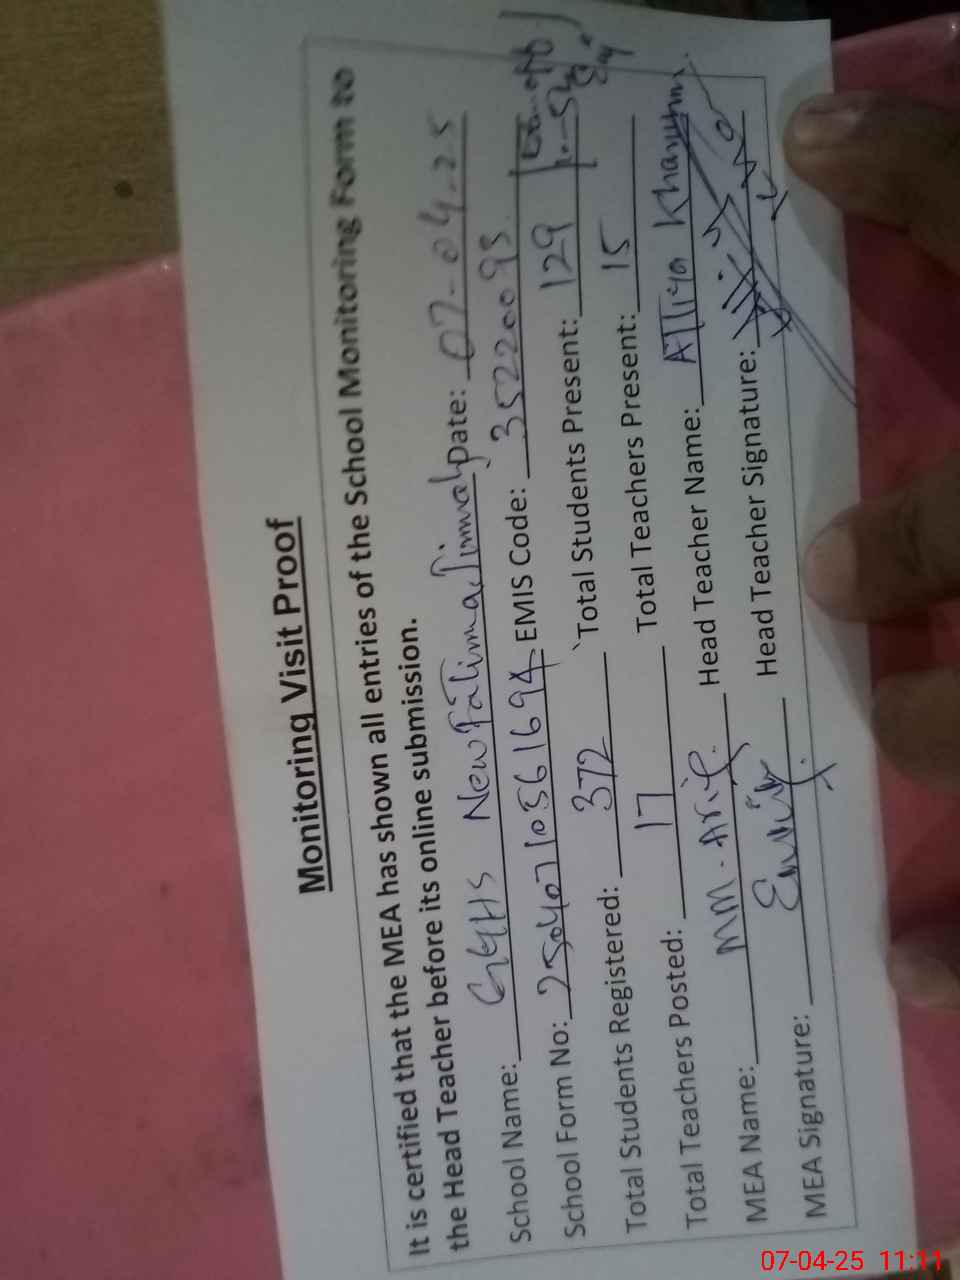 Monitoring Visit Proof
It is certified that the MEA has shown all entries of the School Monitoring Form to
the Head Teacher before its online submission.
School Name: GGHS New Fatima Jinnah Date: 07-04-25
School Form No: 25040710361694 EMIS Code: 35220093
Total Students Registered: 372 Total Students Present: 129
Total Teachers Posted: 17 Total Teachers Present: 15
MEA Name: MM. Arif Head Teacher Name: Atiya Khanum
MEA Signature: Head Teacher Signature:
07-04-25 11:11